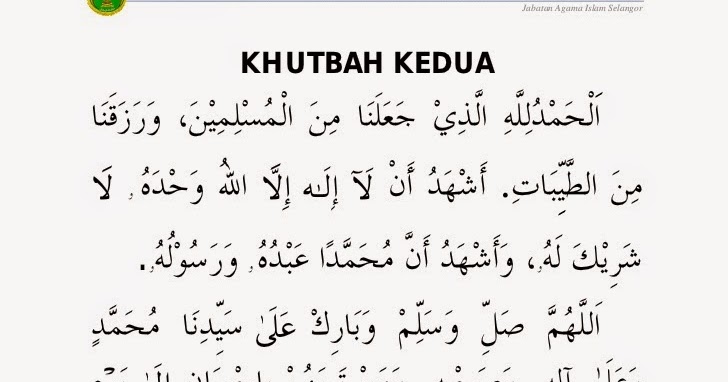 Jabatan Agama Islam Selangor
KHUTBAH KEDUA
اَلْحَمْدُلِلَّهِ الَّذِيْ جَعَلَنَا مِنَ الْمُسْلِمِيْنَ، وَرَزَقَنَا
مِنَ الطَّيِّبَاتِ. أَشْهَدُ أَنْ لَآ إِلَـٰه إِلَّا اللهُ وَحْدَهُۥ لَا
شَرِيْكَ لَهُۥ، وَأَشْهَدُ أَنَّ مُحَمَّدًا عَبْدُهُۥ وَرَسُوْلُهُۥ.
اَللَّهُمَّ صَلِّ وَسَلِّمْ وَبَارِكْ عَلَىٰ سَيِّدِنَا مُحَمَّدٍ